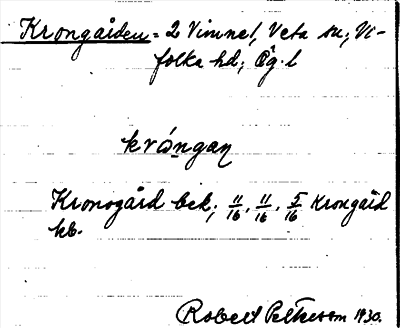 Krongården = 2 Vimne!, Veta sn; Vi-
folka hd; Ög. l
krǻngan
Kronogård bek; 11/16, 11/16, 5/16 Krongård
hb.
Robert Pettersson 1930.